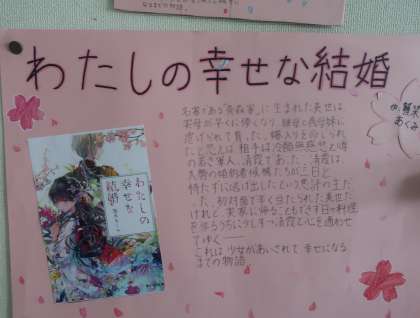 までの物語。
わたしの幸せな結婚
作:顎木
あくみ
名家である斎森家に生まれた美世は、
実母が早くに儚くなり、継母と義母妹に
虐げられて育った。嫁入りを命じられ
たと思えば、相手は冷酷無慈悲と噂
の若き軍人、清霞であった。清霞は、
大勢の婚約者候補たちが三日と
持たずに逃げ出したという悪評の主だ
った。初対面で辛く当たられた美世だ
けれど、実家に帰ることもできず日々料理
を作るうちに少しずつ清霞と心を通わせ
てゆく――
これは、少女があいされて幸せになる
までの物語。
わたしの
幸せな
結婚